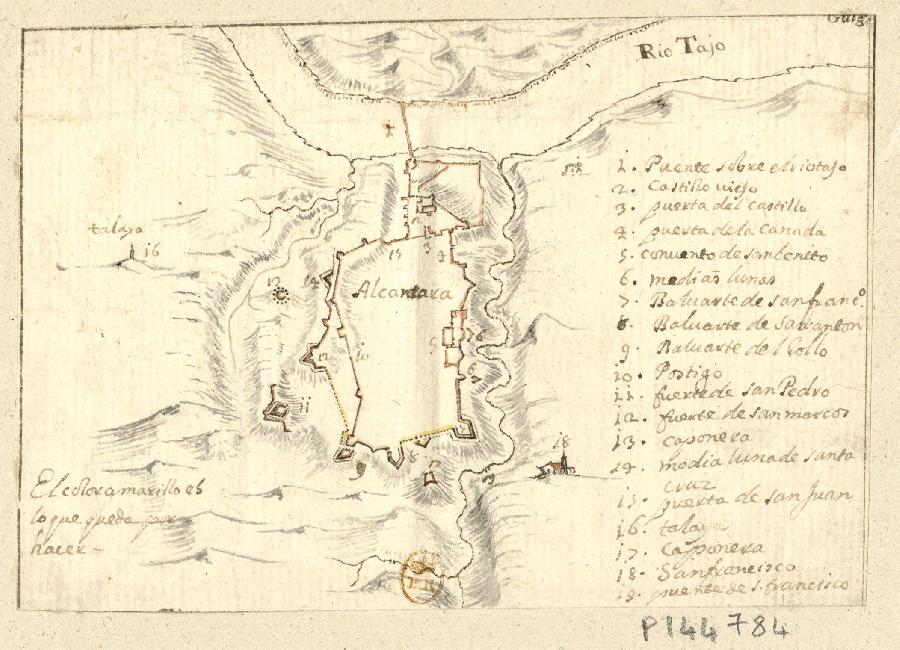 Rio Tajo
1. Puente sobre el rio tajo
2. Castillo viejo
3. puerta del castillo
4. puerta de la Canada
5. convento de san benito
6. medias lunas
7. Baluarte de san franco.
8. Baluarte de san anton
9. Baluarte del Gollo
10. Postigo
11. fuerte de san Pedro
12. fuerte de san marcos
13. caponera
14. media luna de santa
cruz
15. puerta de san Juan
16. talaya
17. Caponera
18. San francisco
19. puente de s. francisco
talaya
16
1
2
3
4
15
14
13
Alcantara
5
7
6
12
10
11
9
8
17
18
El color amarillo es
lo que queda por
hacer-
P144784